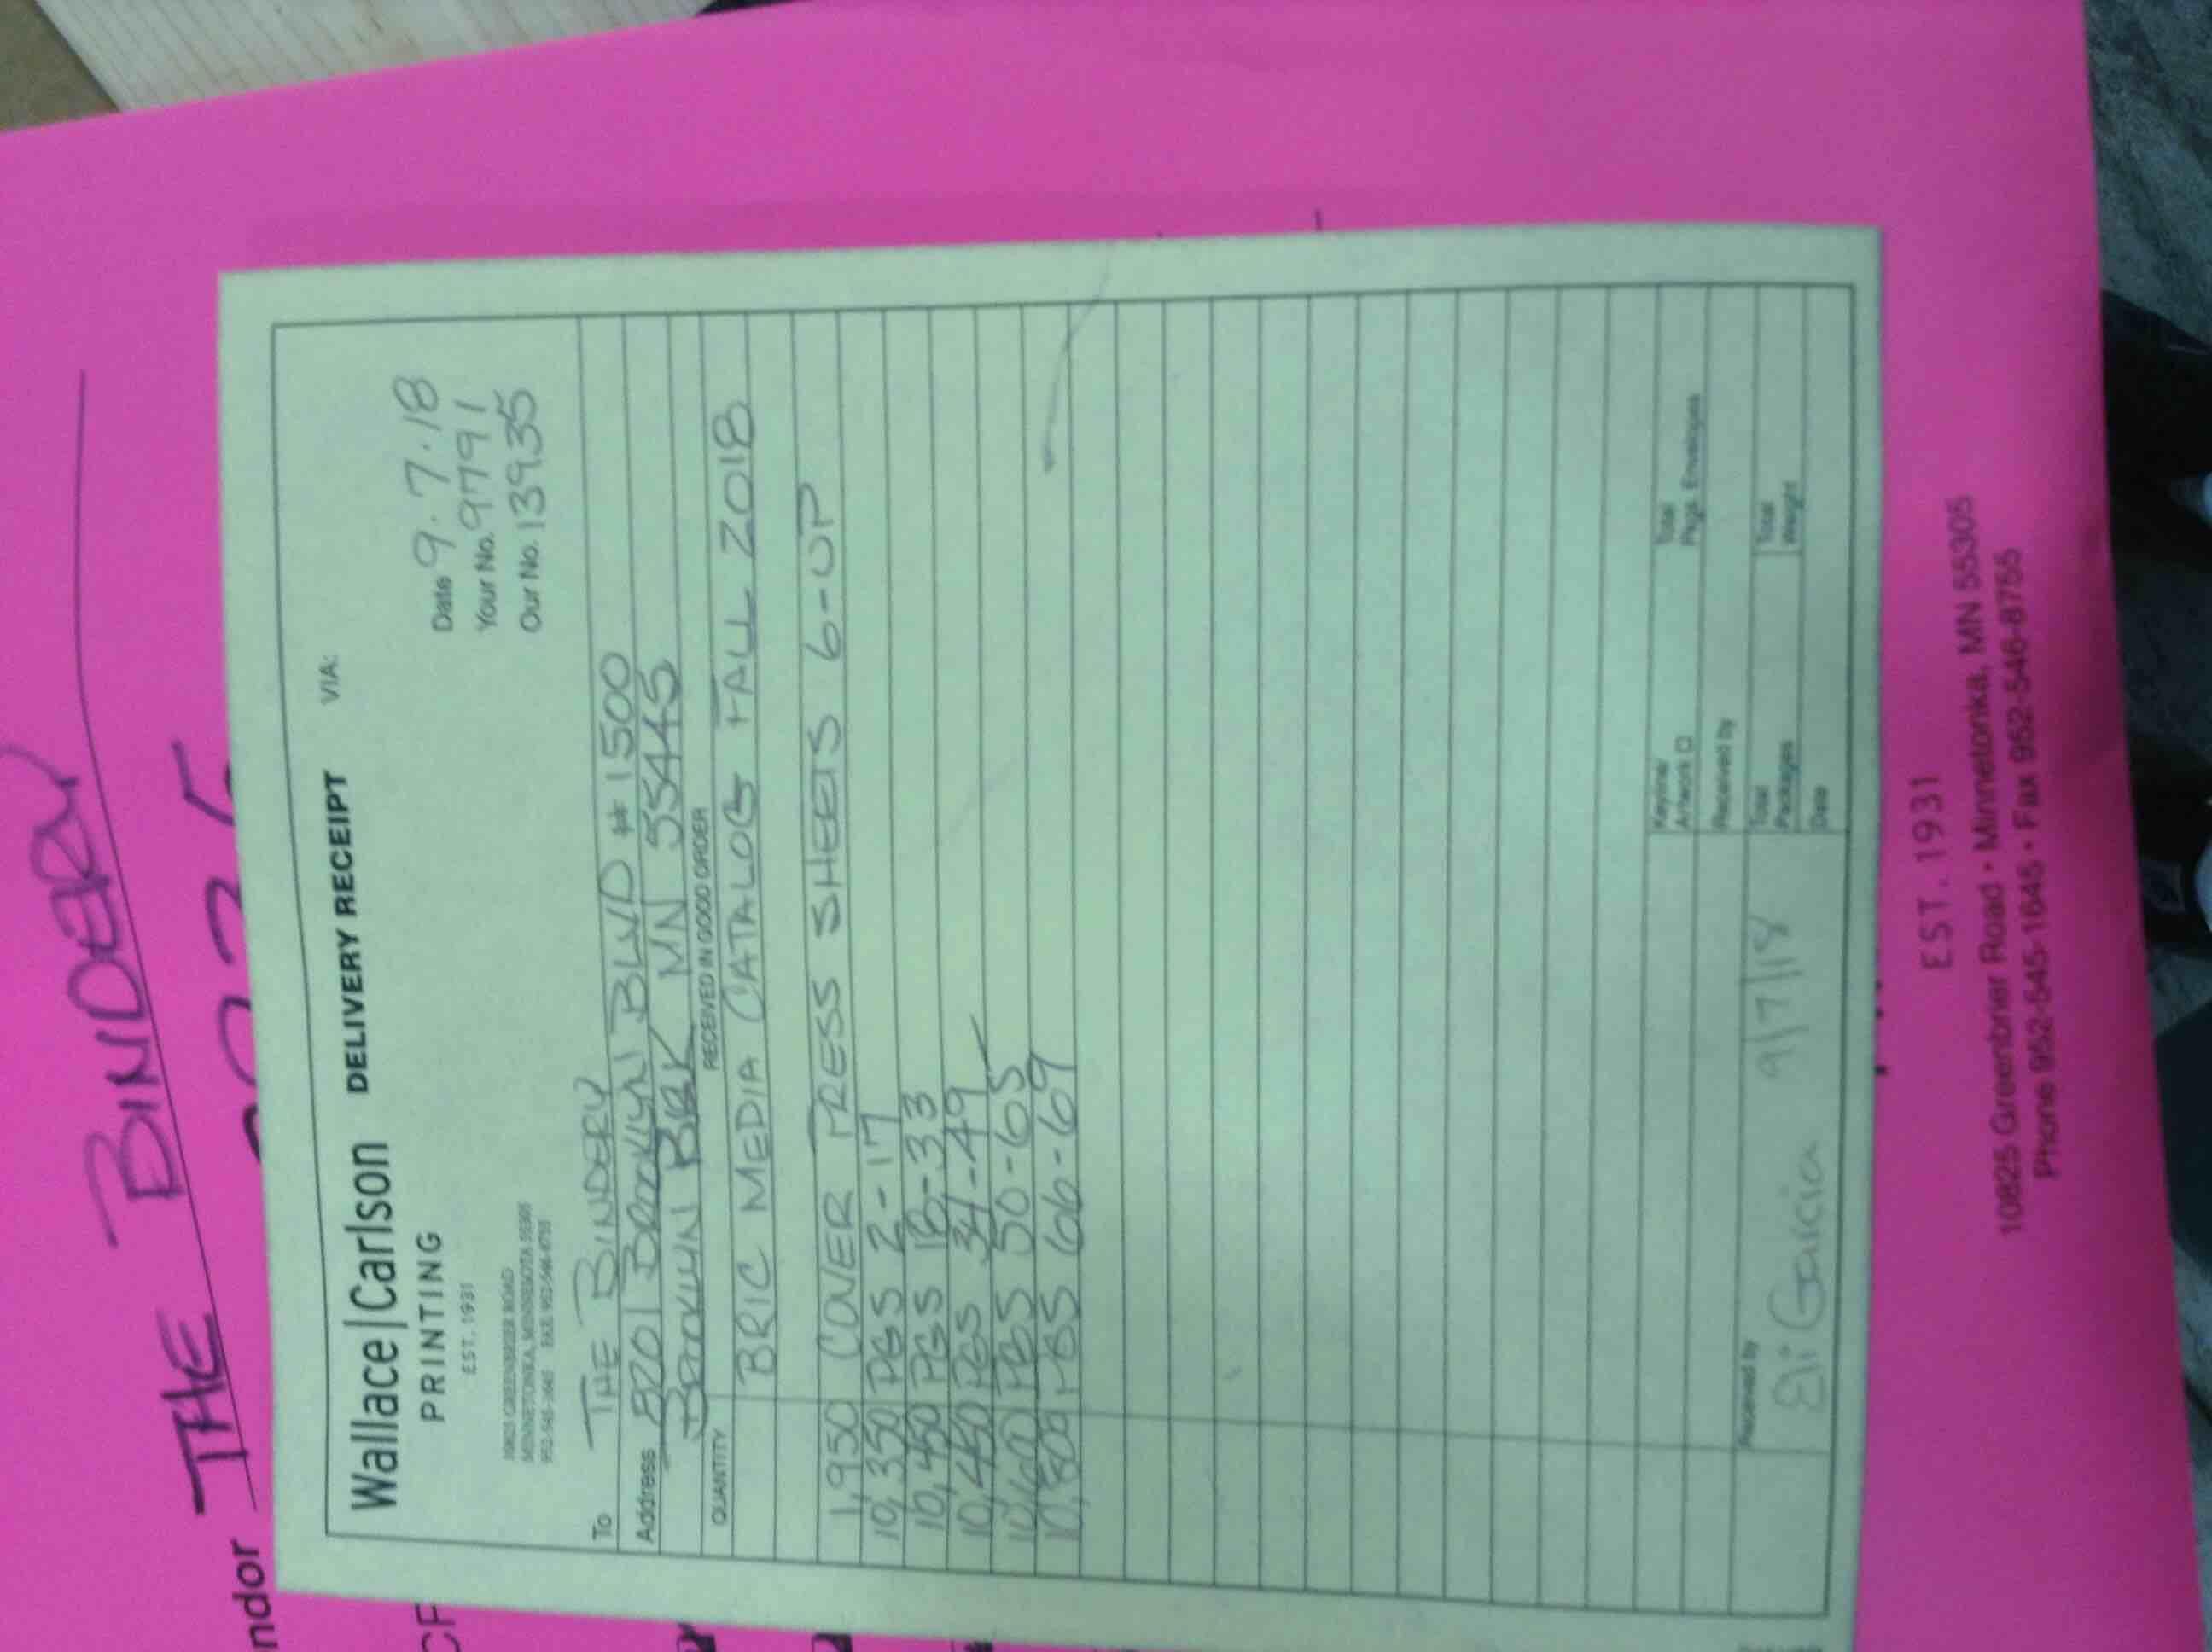 THE BINDERY
ndor
CF
Wallace|Carlson DELIVERY RECEIPT VIA:
PRINTING
EST. 1931
10825 GREENBRIER ROAD
MINNETONKA, MINNESOTA 55305
952-545-1645 FAX 952-546-8755
Date 9.7.18
Your No. 97791
Our No. 13935
To THE BINDERY
Address 8201 Brooklyn BLVD #1500
Brooklyn PARK MN 55445
QUANTITY RECEIVED IN GOOD ORDER
BRIC MEDIA CATALOG FALL 2018
1,950 COVER PRESS SHEETS 6-UP
10,350 PGS 2-17
10,450 PGS 18-33
10,450 PGS 34-49
10,600 PGS 50-65
10,800 PGS 66-69
Keyline/ Artwork Total Pkgs. Envelopes
Received by
Total Packages Total Weight
Date
Received by
Eli Garcia 9/7/18
EST. 1931
10825 Greenbrier Road • Minnetonka, MN 55305
Phone 952-545-1645 • Fax 952-546-8755